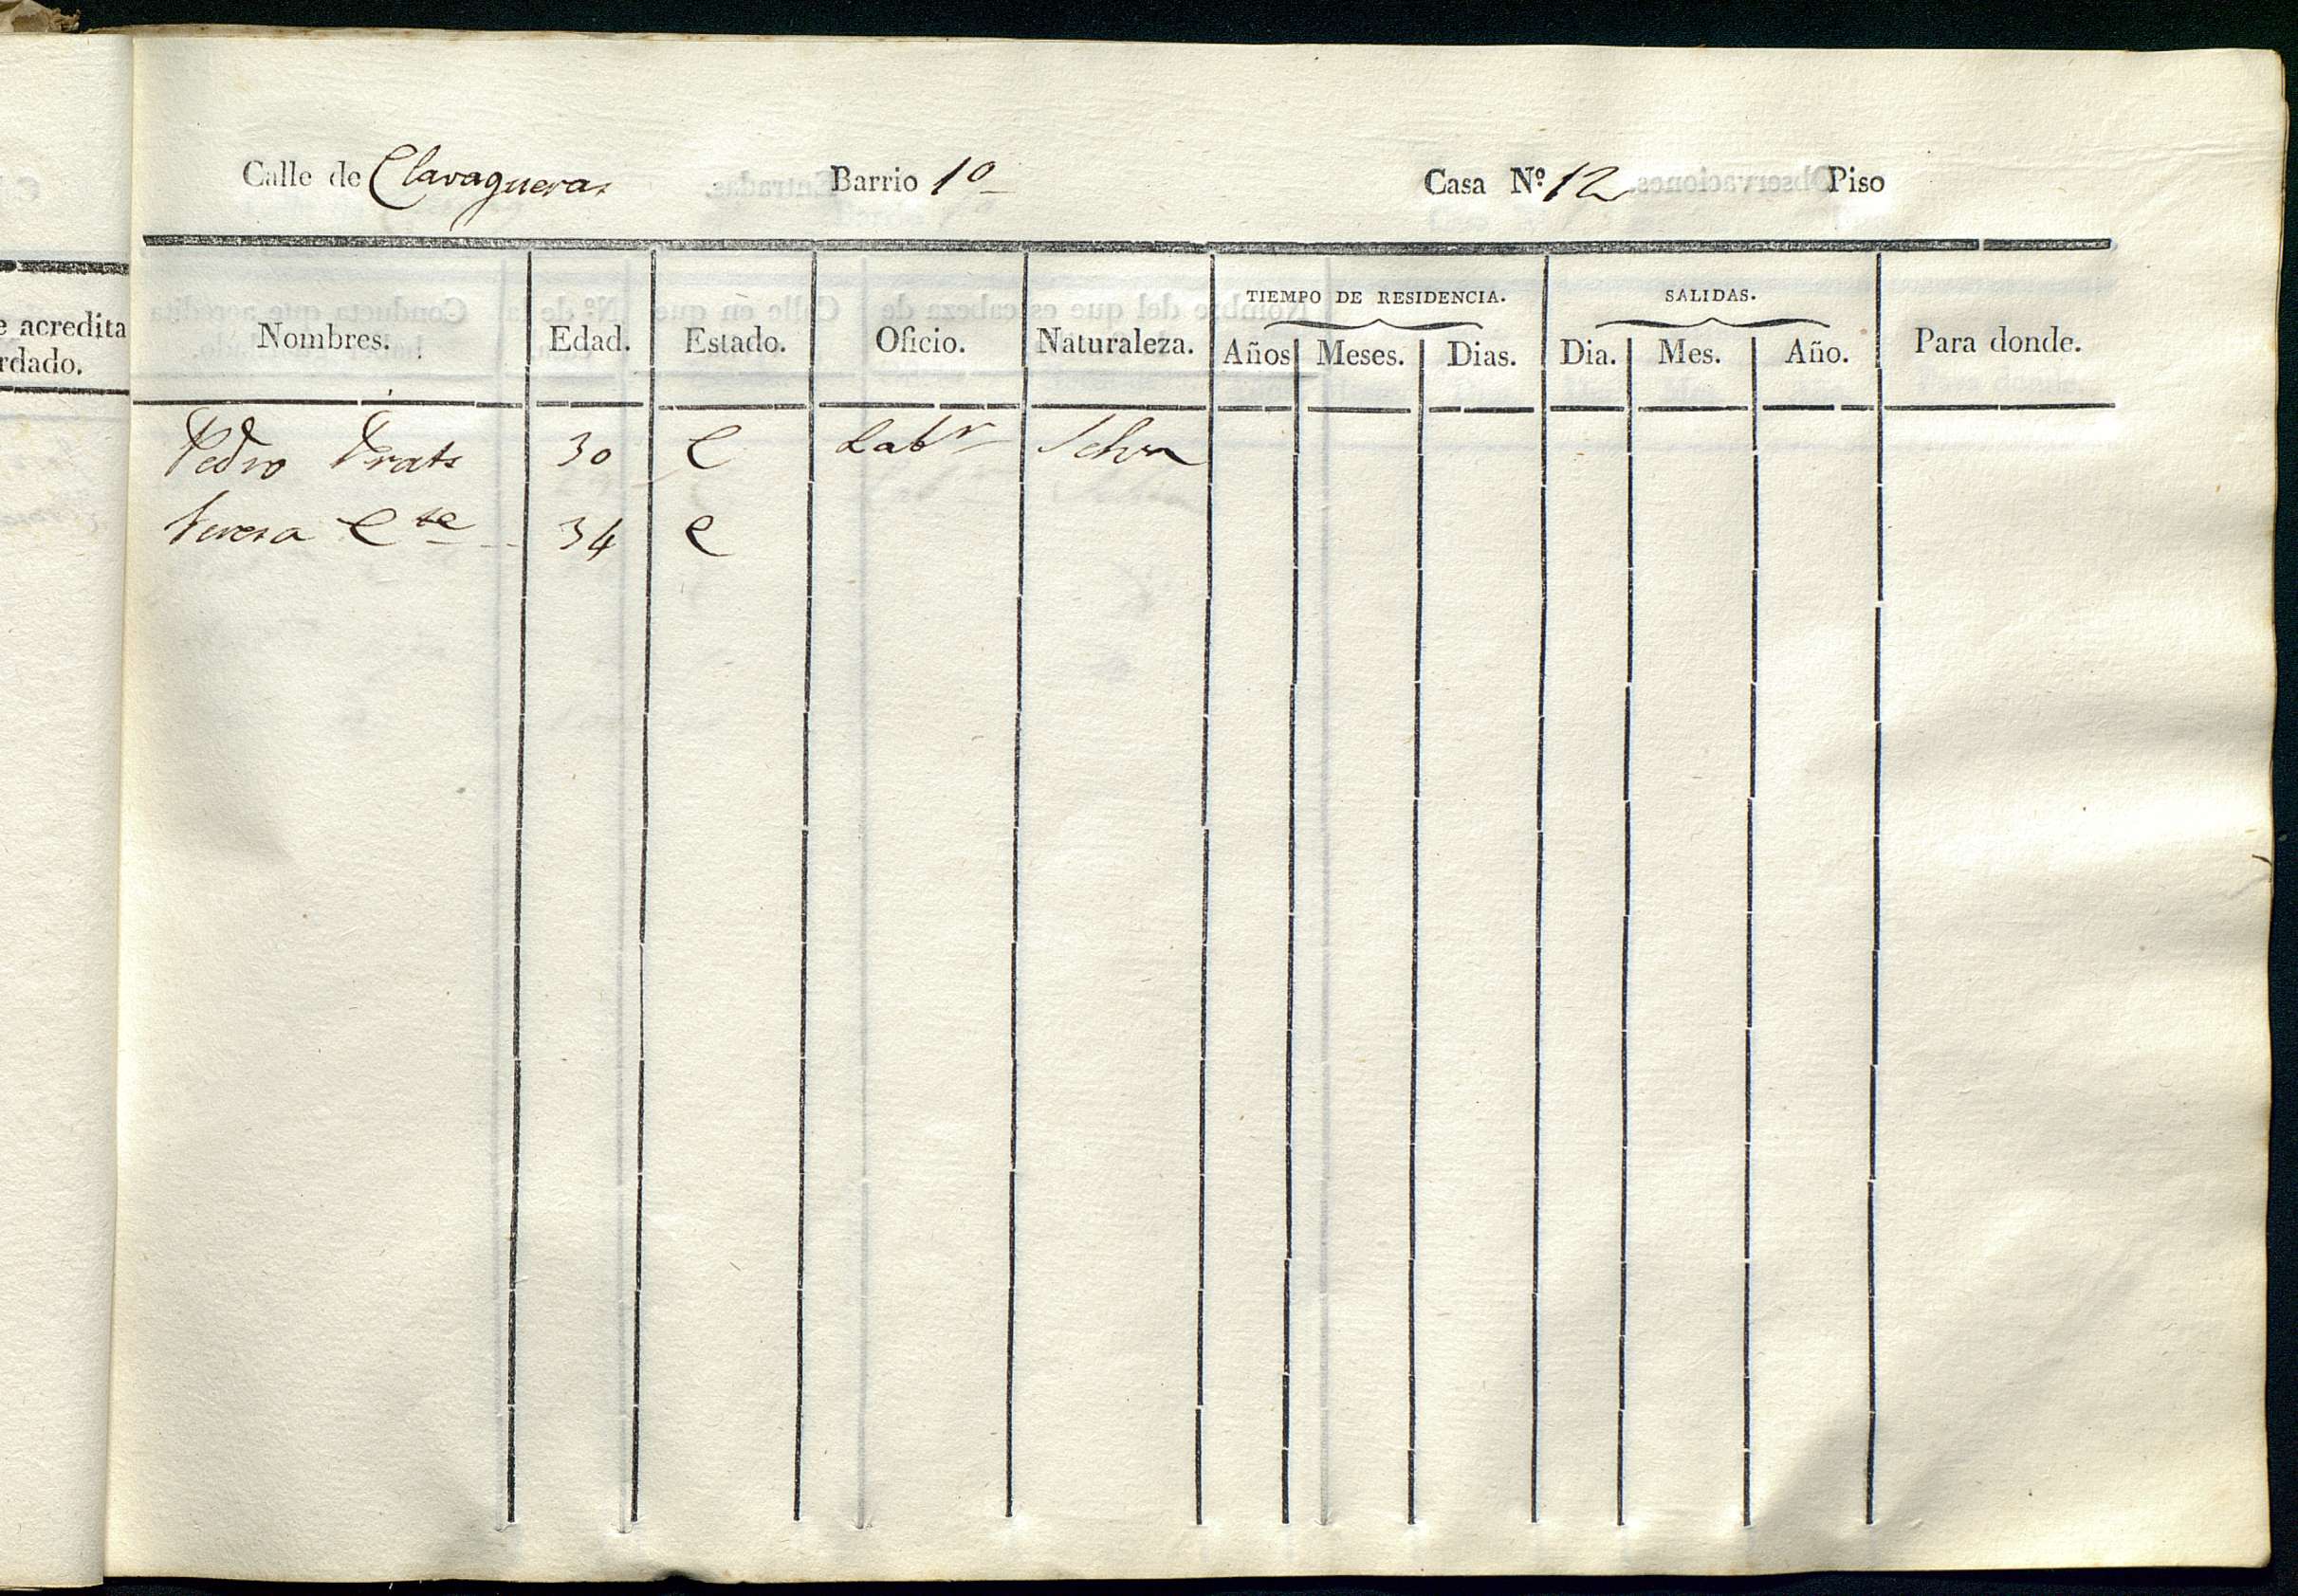 Calle de Clavagueras Barrio 1º Casa Nº 12 Piso
e acredita
rdado.
TIEMPO DE RESIDENCIA. SALIDAS.
Nombres. Edad. Estado. Oficio. Naturaleza. Años Meses. Dias. Dia. Mes. Año. Para donde.
Pedro Prats 30 C Labr Selva
Teresa Cte 34 C